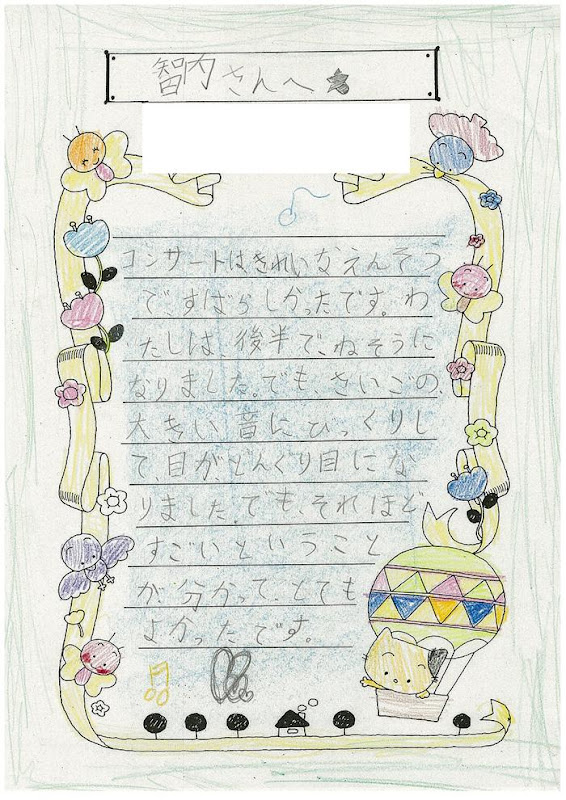 智内さんへ
コンサートはきれいなえんそう
で、すばらしかったです。わ
たしは、後半で、ねそうに
なりました。でも、さいごの、
大きい音に、びっくりし
て、目が、どんぐり目にな
りました。でも、それほど
すごいということ
が分かってとても
よかったです。